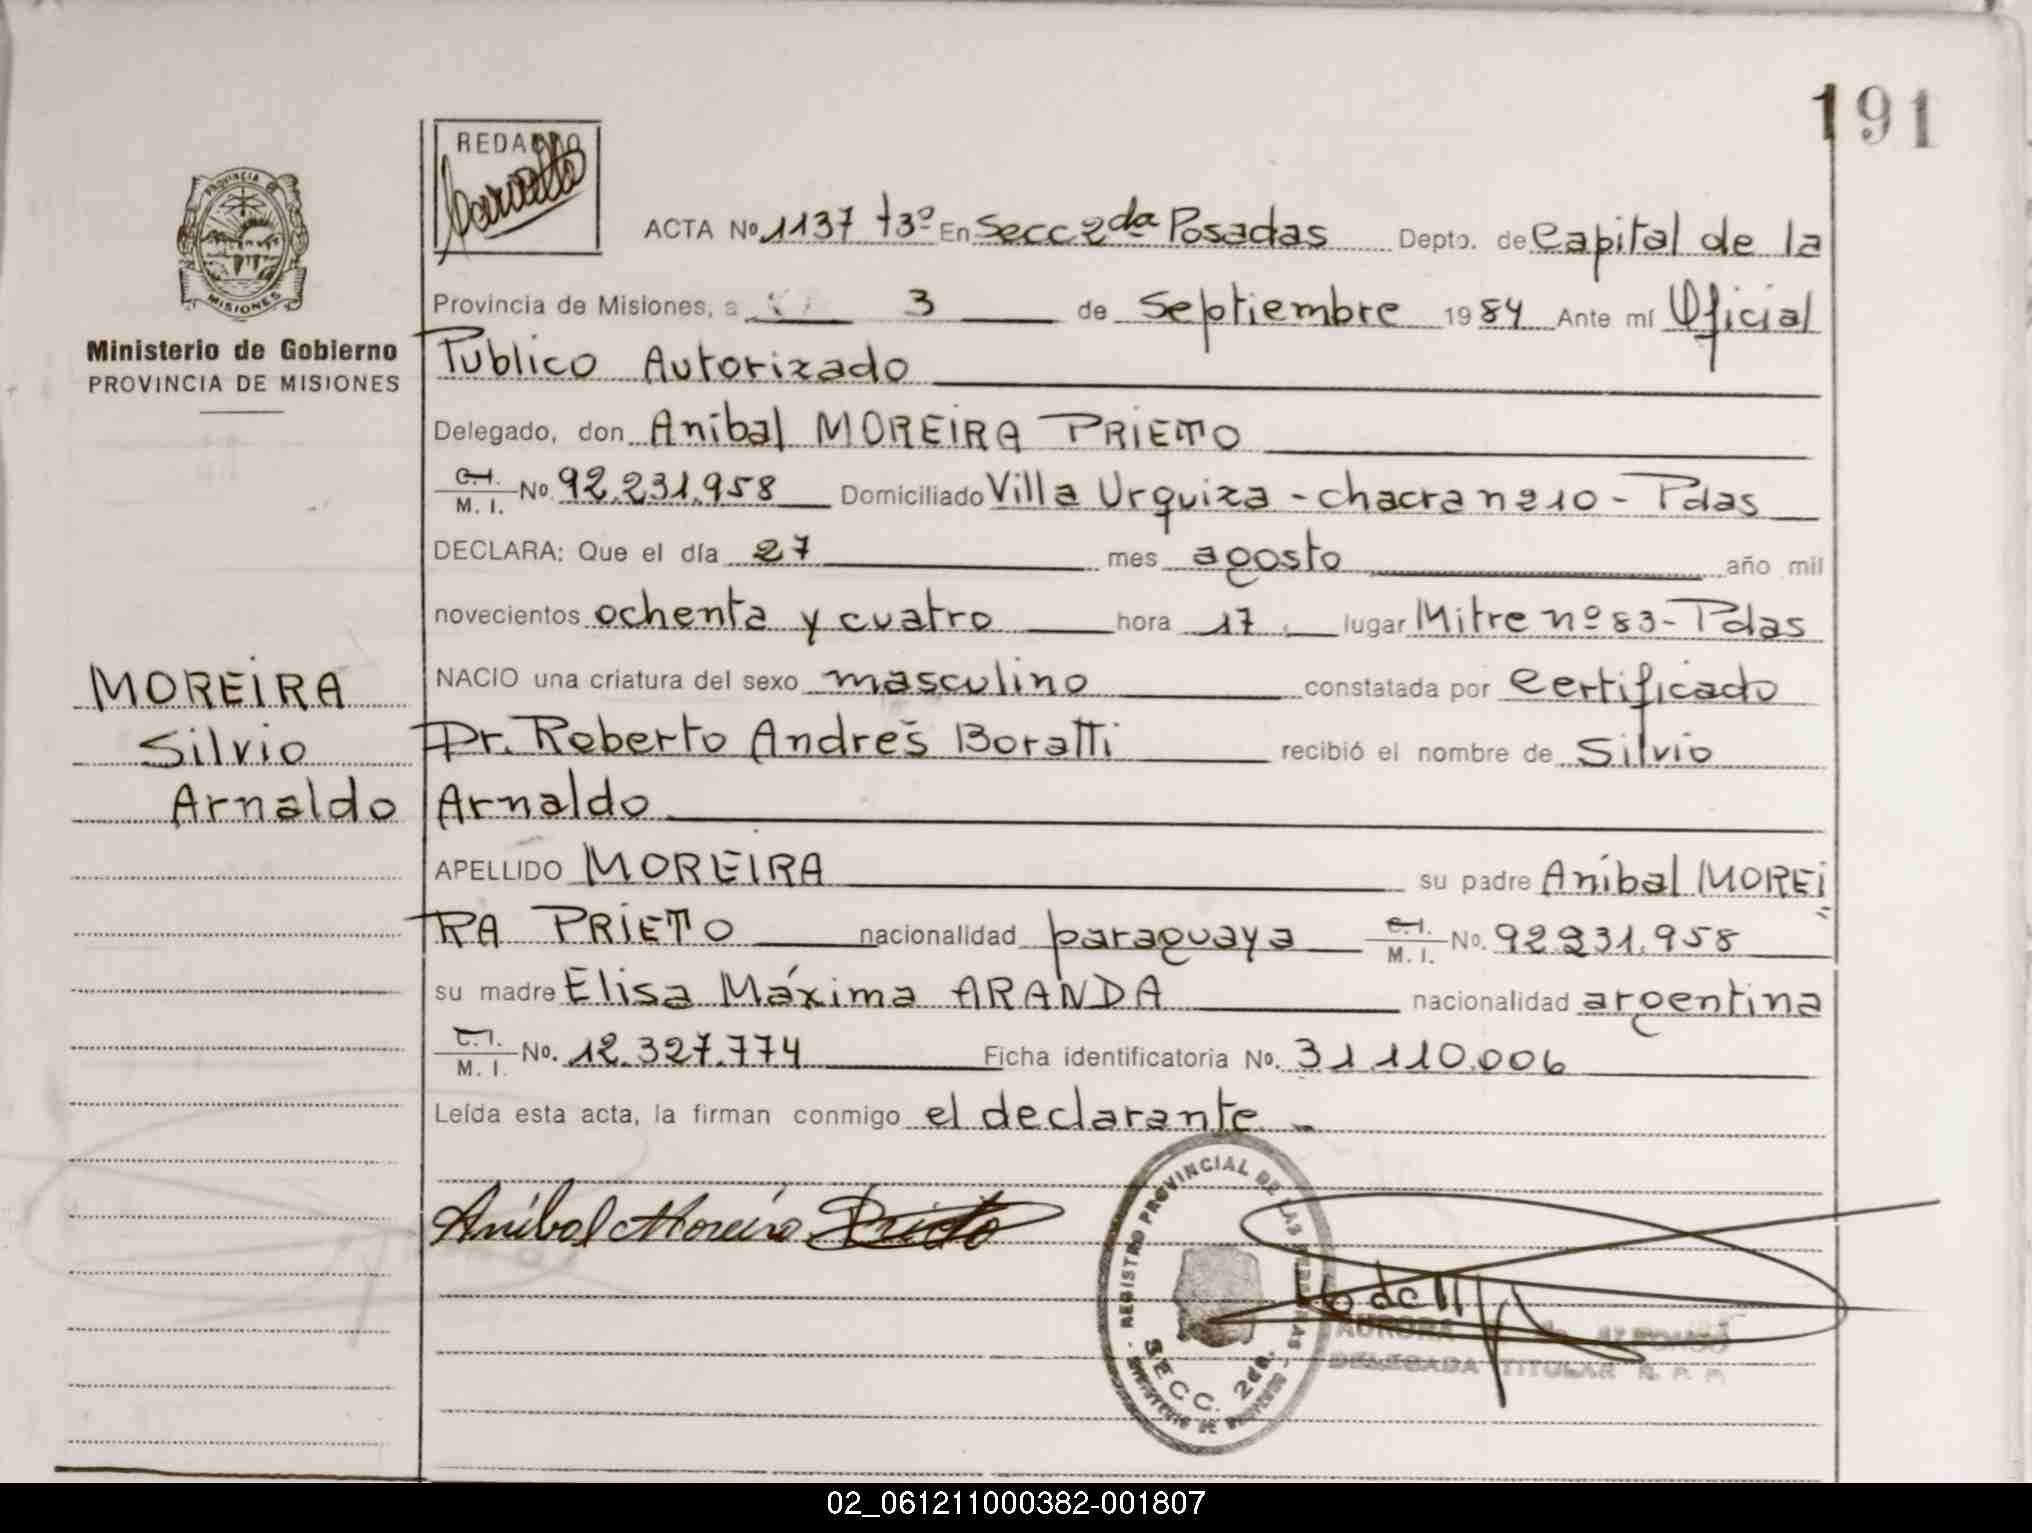 191
REDACTO
PROVINCIA DE
MISIONES
Ministerio de Gobierno
PROVINCIA DE MISIONES
MOREIRA
Silvio
Arnaldo
ACTA Nº 1137 t3º En Secc 2da Posadas Depto. de Capital de la
Provincia de Misiones, a 3 de Septiembre 1984 Ante mí Oficial
Publico Autorizado
Delegado, don Anibal MOREIRA PRIETO
C.I. / M. I. Nº 92.231.958 Domiciliado Villa Urquiza - chacra nº 10 - Pdas
DECLARA: Que el día 27 mes agosto año mil
novecientos ochenta y cuatro hora 17. lugar Mitre nº 83 - Pdas
NACIO una criatura del sexo masculino constatada por certificado
Dr. Roberto Andrés Boratti recibió el nombre de Silvio
Arnaldo
APELLIDO MOREIRA su padre Aníbal MOREI
RA PRIETO nacionalidad paraguaya C.I. / M. I. Nº. 92.231.958
su madre Elisa Máxima ARANDA nacionalidad argentina
C.I. / M. I. Nº. 12.327.774 Ficha identificatoria Nº. 31.110.006
Leída esta acta, la firman conmigo el declarante.-
Aníbal Moreira Prieto
REGISTRO PROVINCIAL DE LAS PERSONAS
SECC. 2da.
AURORA
DELEGADA TITULAR
02_061211000382-001807